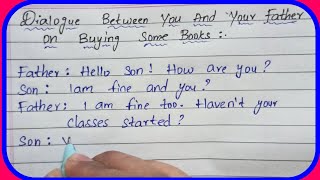 Dialogue Between You And Your Father
on Buying Some Books :.
Father : Hello Son! How are you?
Son : I am fine and you?
Father : I am fine too. Haven't your
classes started?
Son :